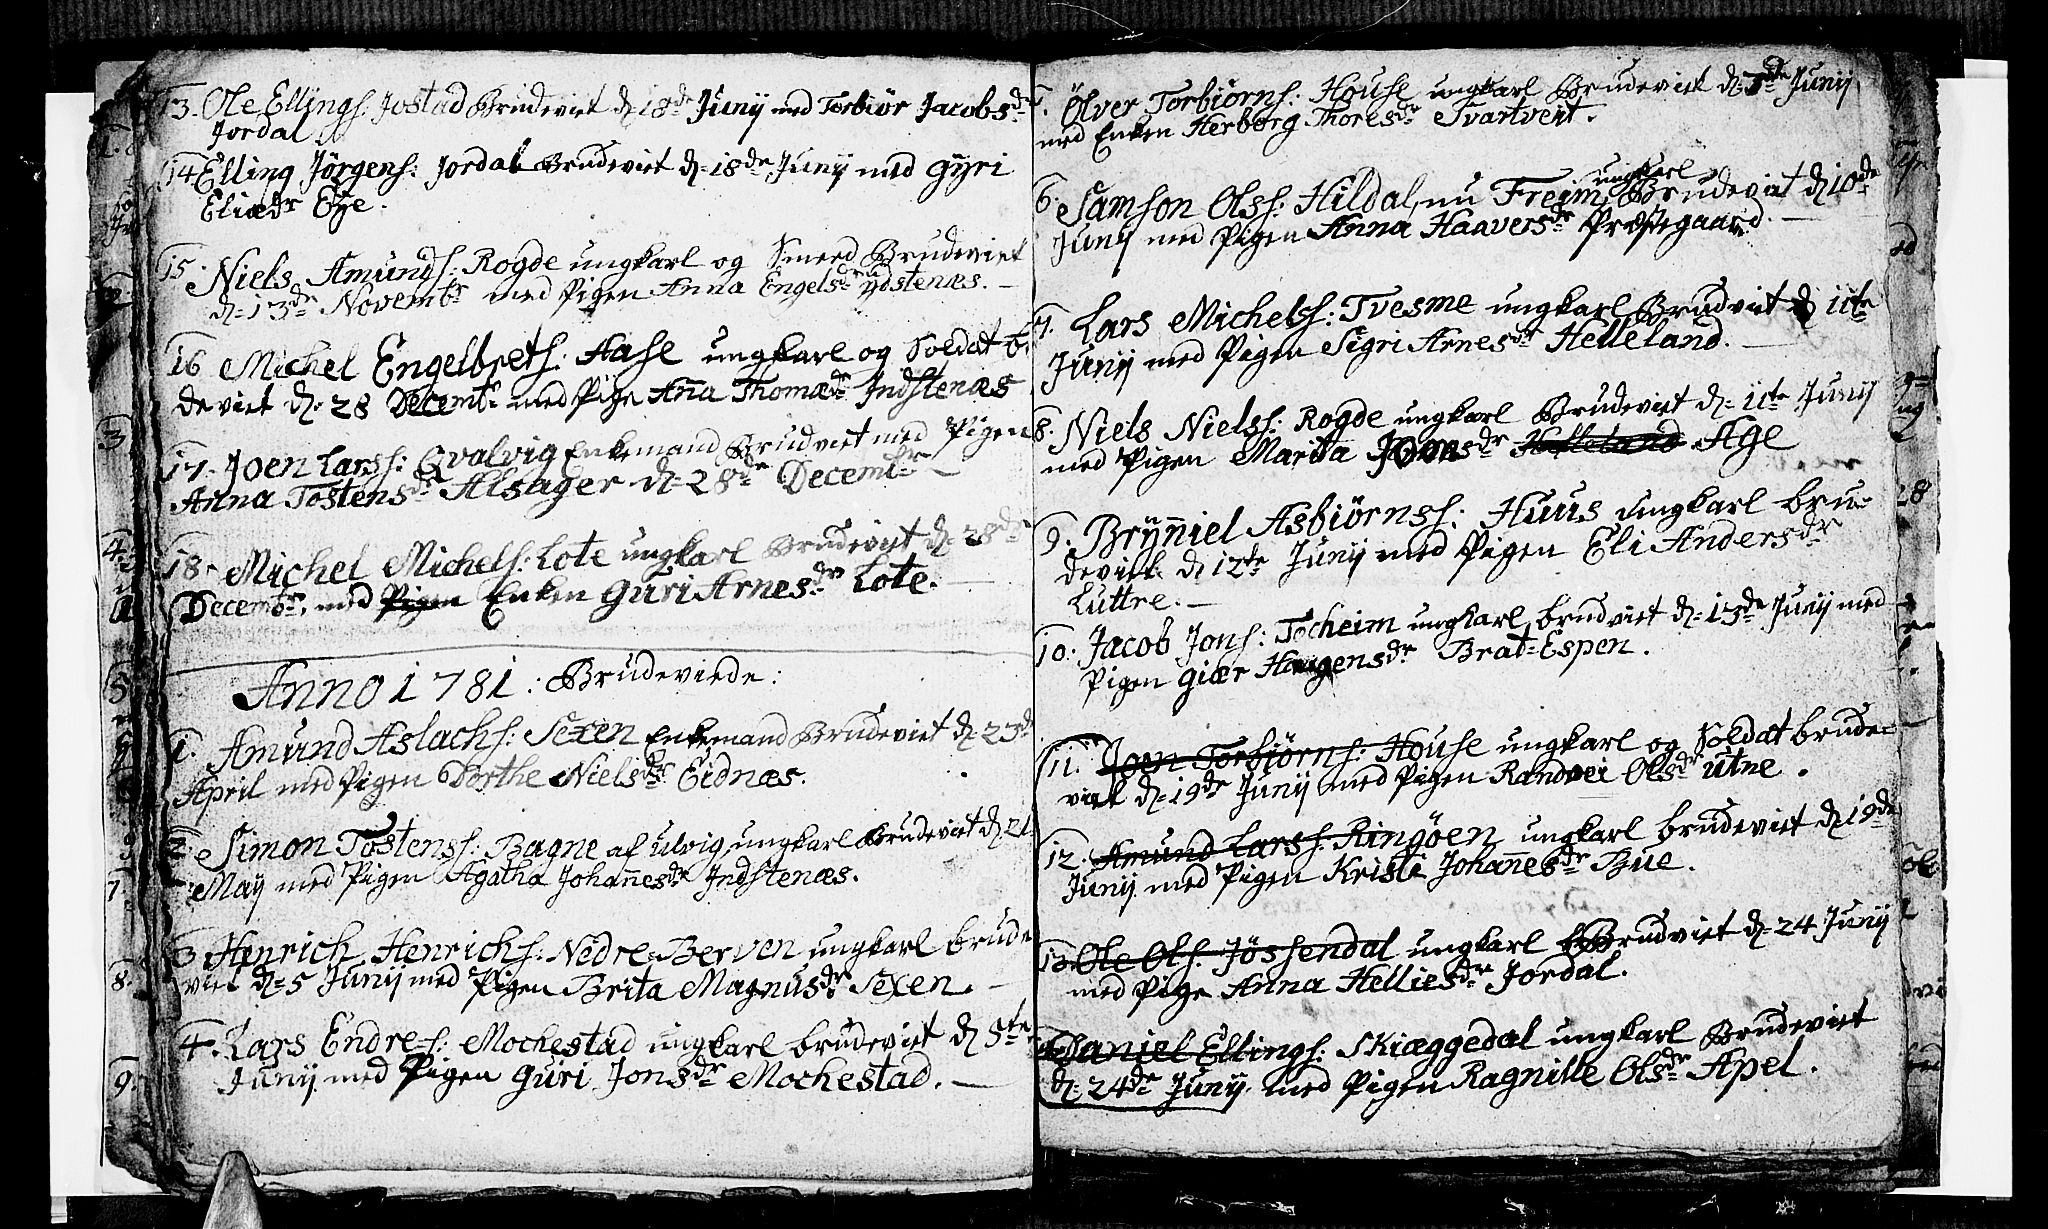 13. Ole Ellings: Jostad Brudeviet d. 18de Junij med Torbiør Jacobsdr
Jordal
14 Elling Jørgens: Jordal Brudviet d. 18de Junij med Gyri
Eliædr Eÿe.
15. Niels Amunds: Rogde ungkarl og Smeed Brudeviet
d. 13de Novembr med Pigen Anna Engelsdr ÿdstenæs.
16 Michel Engelbrets: Aase ungkarl og Soldat b.
deviet d. 28 Decembr med Pige Anna Thomædr Indstenæs
17. Joen Larss: Qvalvig Enkemand Brudviet med Pigen
Anna Tostensdr Alsager d. 28de Decembr
18. Michel Michels: Lote ungkarl Brudeviet d. 28de
Decembr. med Pigen Enken Guri Arnesdr Lote.
Anno 1781: Brudeviede:
1. Amund Aslachs: Sexen Enkemand Brudeviet d. 23de
April med Pigen Dorthe Nielsdr Eidnæs.
2. Simon Tostens: Bagne af Ulvig ungkarl Brudeviet d. 21
Maÿ med Pigen Agatha Johannesdr Indstenæs.
3 Henrich Henrichs: Nedre-Berven ungkarl brude
viet d. 5 Junij med Pigen Brita Magnusdr Sexen.
4. Lars Endres: Mochestad ungkarl brudeviet d. 5te
Junij med Pigen Guri Jonsdr Mochestad.
5. Ölver Torbiörns: House ungkarl Brudeviet d. 7de Junij
med Enken Herborg Thoresdr Svartveit.
ungkarl
6. Samson Olss: Hildal, nu Freim, Brudeviet d 10de
Junij med Pigen Anna Haaversdr Præstegaard.
7. Lars Michelss: Tvesme ungkarl Brudviet d 11te
Junij med Pigen Sigri Arnesdr Helleland.
8. Niels Nielss: Rogde ungkarl Brudeviet d. 11te Junij
med Pigen Marita Joensdr Helleland Age
9. Brÿniel Asbiörnss: Huus ungkarl bru-
deviet d. 12te Junij med Pigen Eli Andersdr
Luttre.
10. Jacob Jons: Tocheim ungkarl brudviet d. 13de Junij med
Pigen Giær Haagensdr Brat-Espen.
11. Joen Torbiörns: House ungkarl og Soldat brude-
viet d. 19de Junij med Pigen Randvei Olsdr Utne.
12. Amund Larss: Ringöen ungkarl brudeviet d. 19de
Junij med Pigen Kristi Johannesdr Bue.
13. Ole Ols: Jössendal ungkarl Brudviet d. 24 Junij
med Pige Anna Helliesdr Jordal.
Daniel Ellings: Skiæggedal ungkarl Brudeviet
d. 24de Junij. med Pigen Ragnille Olsdr Apel.